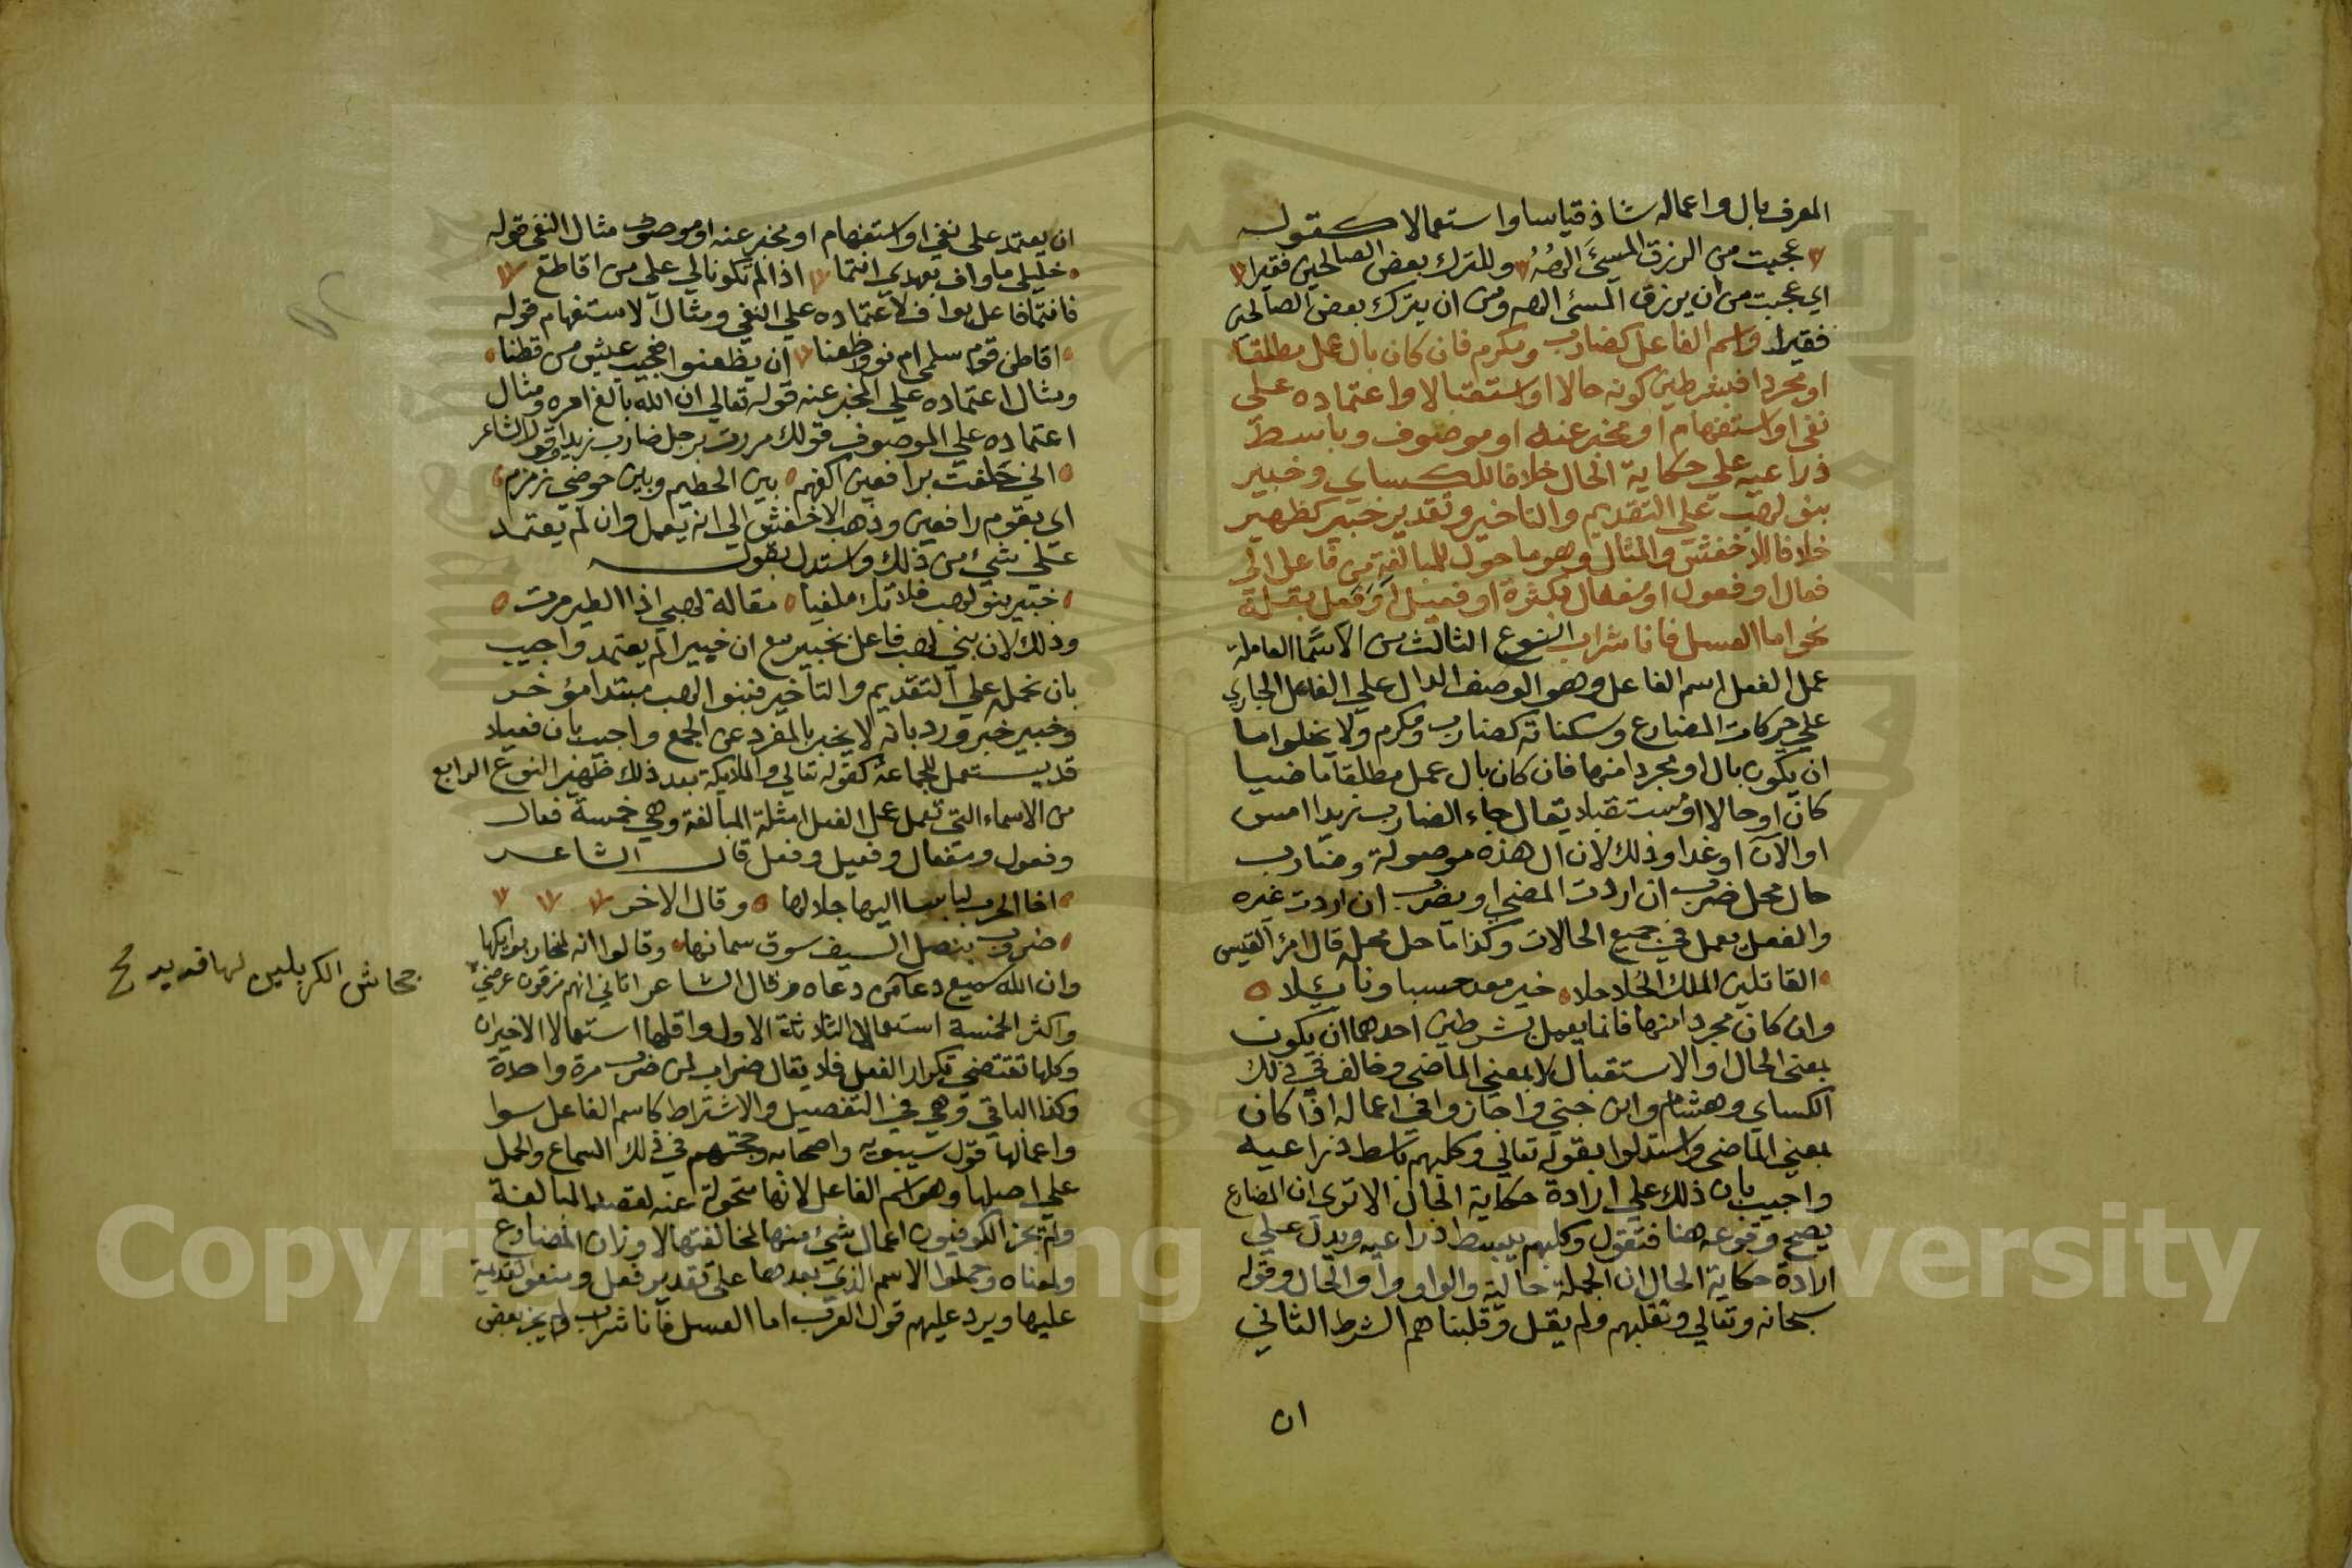 المعرف بال واعماله شاذ قياسا واستعمالا كقوله
عجبت من الرزق المسيءَ الهُهُ وللترك بعض الصالحين فقيرا
اي عجبت من ان يرزق المسئ الهه ومن ان يترك بعض الصالحين
فقيرا واسم الفاعل كضارب ومكرم فان كان بال عمل مطلقا
او مجردا فبشرطين كونه حالا او استقبالا واعتماده على
نفى او استفهام او مخبر عنه او موصوف وباسط
ذراعيه علي حكاية الحال خلافا للكساي وخبير
بنو لهب علي التقديم والتاخير وتقدير خبير كظهير
خلافا للاخفش والمثال وهو ما حول للمبالغة من فاعل الى
فعال او فعول او مفعال بكثرة او فعيل او فعل بقلة
نحو اما العسل فانا شراب النوع الثالث من الاسما العاملة
عمل الفعل اسم الفاعل وهو الوصف الدال علي الفاعل الجاري
علي حركات المضارع وسكناته كضارب ومكرم ولا يخلوا اما
ان يكون بال او مجردا منها فان كان بال عمل مطلقا ماضيا
كان او حالا او مستقبلا يقال جاء الضارب زيدا امس
او الآن او غدا وذلك لان ال هذه موصولة وضارب
حال محل ضرب ان اردت المضي او يضرب ان اردت غيره
والفعل يعمل في جميع الحالات وكذا ما حل محله قال امرؤ القيس
القاتلين الملك الحُلاحلا خير معد حسبا ونائلا
وان كان مجردا منها فانما يعمل بشرطين احدهما ان يكون
بمعني الحال او الاستقبال لا بمعني الماضي وخالف في ذلك
الكساي وهشام وابن جني واجازوا في اعماله اذا كان
بمعني الماضي واستدلوا بقوله تعالي وكلبهم باسط ذراعيه
واجيب بان ذلك علي ارادة حكاية الحال الا تري ان المضارع
يصح وقوعه هنا فتقول وكلبهم يبسط ذراعيه ويدل علي
ارادة حكاية الحال ان الجملة حالية والواو واو الحال وقوله
سبحانه وتعالي ونقلبهم ولم يقل وقلبناهم الشرط الثاني
ان
ان يعتمد على نفي او استفهام او مخبر عنه او موصوف مثال النفي قوله
خليلي ما واف بعهدي انتما اذا لم تكونا لي علي من اقاطع
فانتما فاعل بواف لاعتماده علي النفي ومثال الاستفهام قوله
اقاطن قوم سلمى ام نووا ظعنا ان يظعنوا فعجيب عيش من قطنا
ومثال اعتماده علي المخبر عنه قوله تعالي ان الله بالغ امره ومثال
اعتماده علي الموصوف قولك مررت برجل ضارب زيدا وقول الشاعر
اني حلفت برافعين اكفهم بين الحطيم وبين حوضي زمزم
اي بقوم رافعين وذهب الاخفش الي انه يعمل وان لم يعتمد
علي شيء من ذلك واستدل بقوله
خبير بنو لهب فلا تك ملغيا مقالة لهبي اذا الطير مرت
وذلك لان بني لهب فاعل بخبير مع ان خبيرا لم يعتمد واجيب
بان نحمله علي التقديم والتاخير فبنوا لهب مبتدا مؤخر
وخبير خبر ورد بانه لا يخبر بالمفرد عن الجمع واجيب بان فعيلا
قد يستعمل للجماعة كقوله تعالي والملايكة بعد ذلك ظهير النوع الرابع
من الاسماء التي تعمل عمل الفعل امثلة المبالغة وهي خمسة فعال
وفعول ومفعال وفعيل وفعل قال الشاعر
اخا الحرب لباسا اليها جلالها وقال الاخر
ضروب بنصل السيف سوق سمانها وقالوا انه لمنحار بوايكها
وان الله سميع دعا من دعاه وقال الشاعر اتاني انهم مزقون عرضي
جحاش الكرملين لها فديد صح
واكثر الخمسة استعمالا الثلاثة الاول واقلها استعمالا الاخيران
وكلها تقتضي تكرار الفعل فلا يقال ضراب لمن ضرب مرة واحدة
وكذا الباقي وهي في التفصيل والاشتراط كاسم الفاعل سوا
واعمالها قول سيبويه واصحابه وحجتهم في ذلك السماع والحمل
علي اصلها وهو اسم الفاعل لانها متحولة عنه لقصد المبالغة
ولم يجز الكوفيون اعمال شئ منها لمخالفتها لاوزان المضارع
ولمعناه وحملوا الاسم الذي بعدها على تقدير فعل ومنعوا تقديمه
عليها ويرد عليهم قول العرب اما العسل فانا شراب ولم يجز بعض